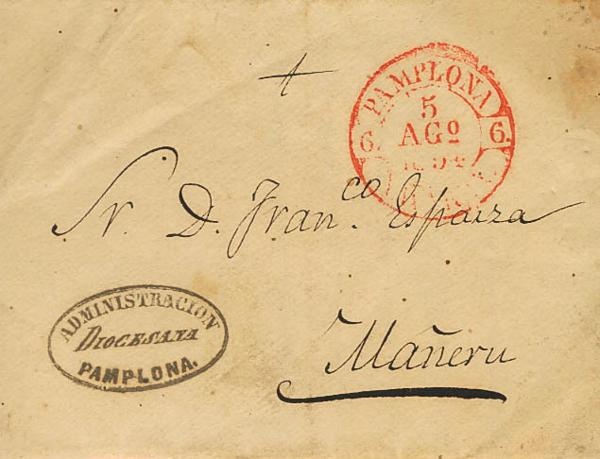 PAMPLONA
5
AGO
6. 6.
Sr. D. Fran.co Esparza
ADMINISTRACION
DIOCESANA
PAMPLONA.
Mañeru